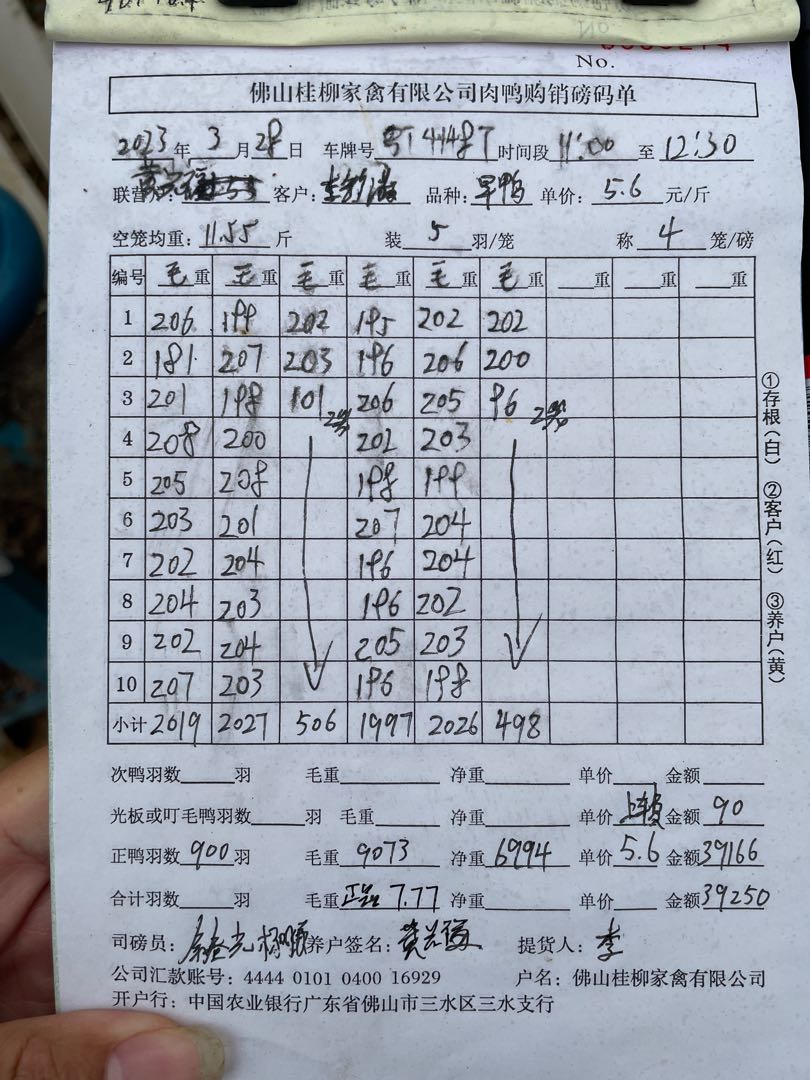 No.
佛山桂柳家禽有限公司肉鸭购销磅码单
2023年 3月28日 车牌号 时间段 11:00 至 12:30
联营户: 客户: 品种: 旱鸭 单价: 5.6 元/斤
空笼均重: 11.55 斤 装 5 羽/笼 称 4 笼/磅
编号 毛重 毛重 毛重 毛重 毛重 毛重 重 重 重
1 206 199 202 195 202 202
2 181 207 203 196 206 200
3 201 198 101 2笼 206 205 96 2笼
4 208 200 202 203
5 205 208 198 199
6 203 201 207 204
7 202 204 196 204
8 204 203 196 202
9 202 204 205 203
10 207 203 196 198
小计 2019 2027 506 1997 2026 498
次鸭羽数 羽 毛重 净重 单价 金额
光板或叮毛鸭羽数 羽 毛重 净重 单价 上车费 金额 90
正鸭羽数 900 羽 毛重 9073 净重 6994 单价 5.6 金额 39166
合计羽数 毛重 正品 7.77 净重 单价 金额 39250
司磅员: 养户签名: 提货人: 李
公司汇款账号: 4444 0101 0400 16929 户名: 佛山桂柳家禽有限公司
开户行: 中国农业银行广东省佛山市三水区三水支行
①存根(白) ②客户(红) ③养户(黄)